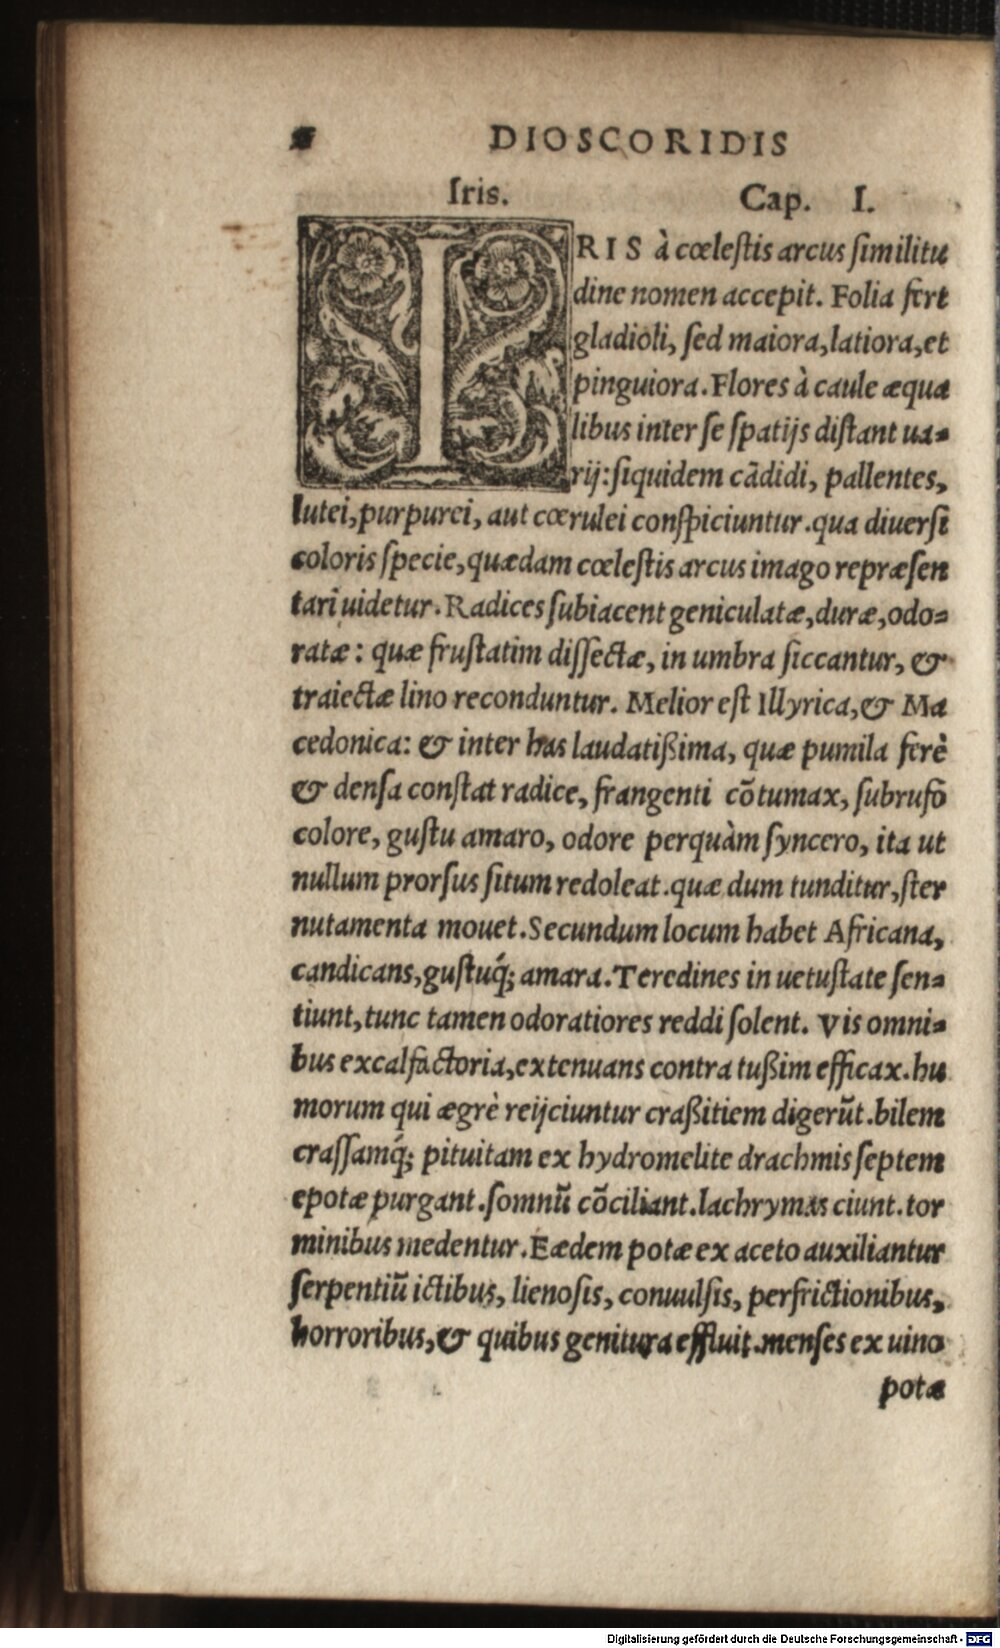 DIOSCORIDIS
Iris. Cap. I.
IRIS à cœlestis arcus similitu
dine nomen accepit. Folia fert
gladioli, sed maiora, latiora, et
pinguiora. Flores à caule æqua
libus inter se spatijs distant ua-
rij: siquidem cādidi, pallentes,
lutei, purpurei, aut cœrulei conspiciuntur. qua diuersi
coloris specie, quædam cœlestis arcus imago repræsen
tari uidetur. Radices subiacent geniculatæ, duræ, odo-
ratæ: quæ frustatim dissectæ, in umbra siccantur, &
traiectæ lino reconduntur. Melior est Illyrica, & Ma
cedonica: & inter has laudatißima, quæ pumila ferè
& densa constat radice, frangenti cōtumax, subrufo
colore, gustu amaro, odore perquàm syncero, ita ut
nullum prorsus situm redoleat. quæ dum tunditur, ster
nutamenta mouet. Secundum locum habet Africana,
candicans, gustuq́; amara. Teredines in uetustate sen-
tiunt, tunc tamen odoratiores reddi solent. Vis omni-
bus excalfactoria, extenuans contra tußim efficax. hu
morum qui ægrè reijciuntur craßitiem digerūt. bilem
crassamq́; pituitam ex hydromelite drachmis septem
epotæ purgant. somnū cōciliant. lachrymas ciunt. tor
minibus medentur. Eædem potæ ex aceto auxiliantur
serpentiū ictibus, lienosis, conuulsis, perfrictionibus,
horroribus, & quibus genitura effluit. menses ex uino
potæ
Digitalisierung gefördert durch die Deutsche Forschungsgemeinschaft - DFG